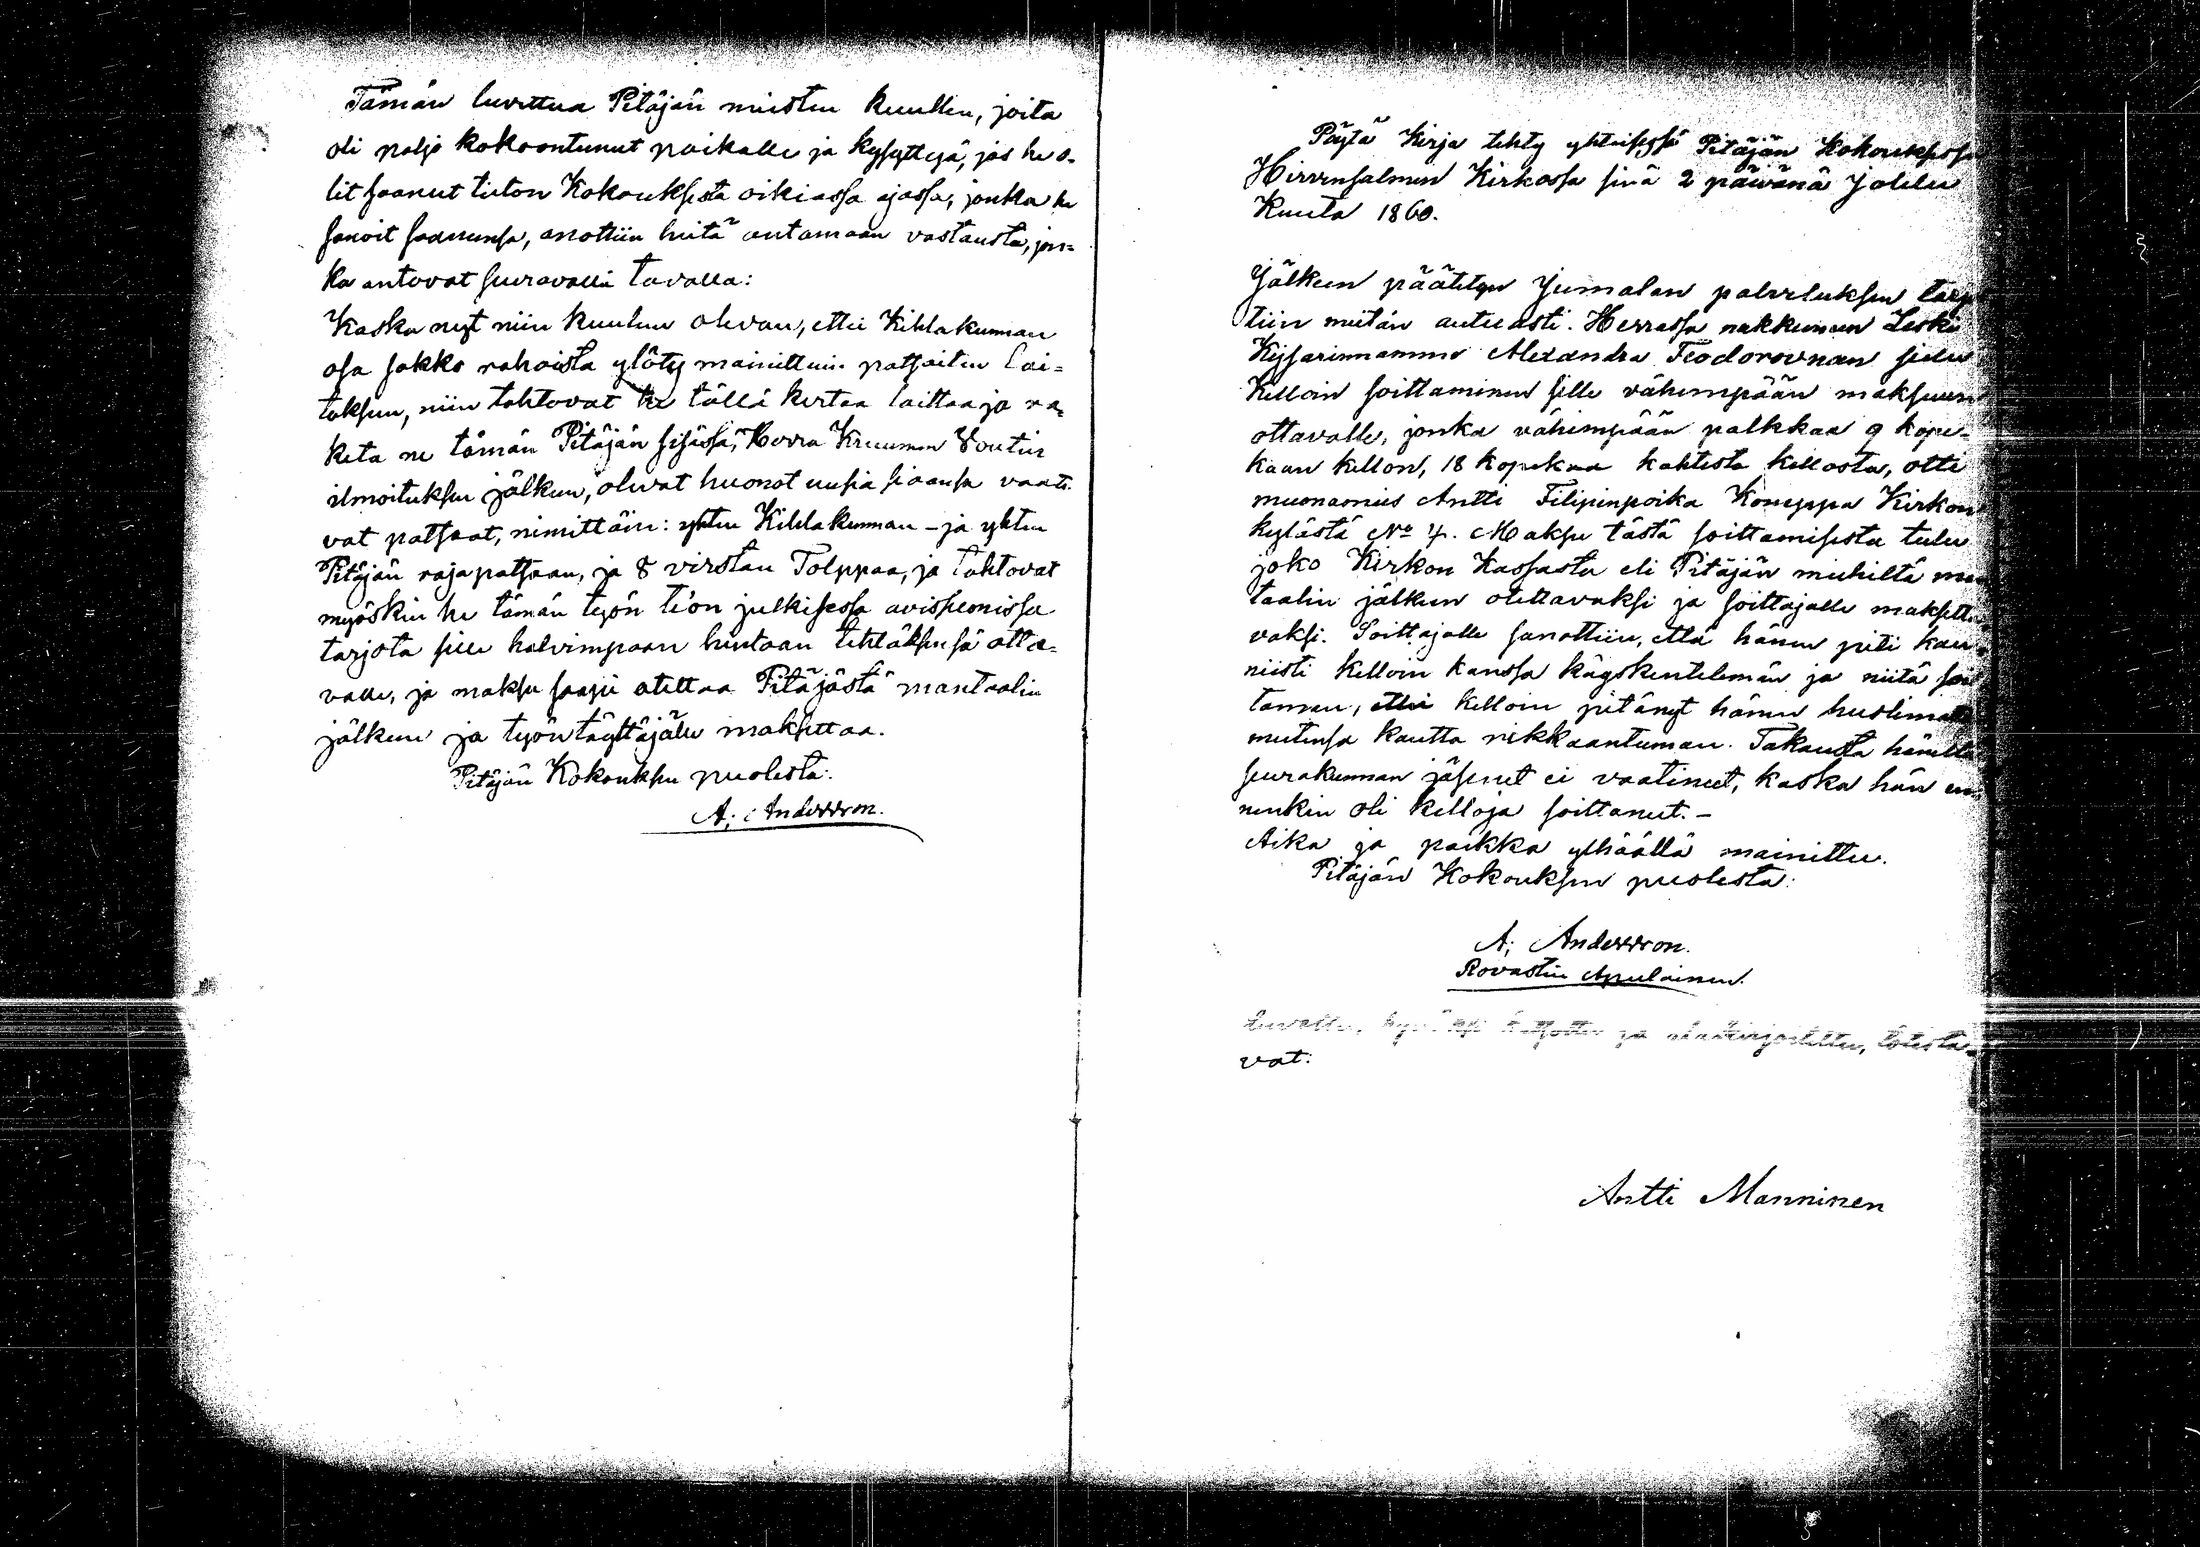 Tämän luvettua Pitäjän miesten kuullen, joita
oli paljo kokoontunut paikalle ja kysyttyä, jos he o-
lit saanut tieton Kokouksesta oikiassa ajassa, jonka he
sanoit saanensa, anottiin heitä antamaan vastausta, jon-
ka antovat seuravalla tavalla:
Kaska nyt niin kuuluu olevan, ettei Kihlakunnan
osa sakko rahoista ylöty mainittuin patsaiten lai-
toksen, niin tahtovat he tällä kertaa laittaa ja ra-
keta ne tämän Pitäjän sisässä, Herra Kruunun Voutin
ilmoituksen jälken, olevat huonot uusia siaansa vaati-
vat patsaat, nimittäin: yhten Kihlakunnan - ja yhten
Pitäjän rajapatsaan, ja 8 virstan Tolppaa, ja tahtovat
myöskin he tämän työn te'on julkisessa avisionissa
tarjota sille halvimpaan hintaan tehläksensä otta-
valle, ja maksu saapi otettaa Pitäjästä mantaalin
jälken ja työn täyttäjälle maksettaa.
Pitäjän Kokouksen puolesta:
A; Andersson.
Pöytä Kirja tehty yhteisessä Pitäjän Kokouksessa
Hirvensalmen Kirkossa sinä 2 päivänä Joulu
Kuuta 1860.
Jälken päätetyn Jumalan palveluksen tarjo
tiin meitän autuasti Herrassa nukkuneen Leski
Kejsarinnamme Alexandra Feodorovnan sielu
Kelloin soittaminen sille vähimpään maksuun
ottavalle, jonka vähimpään palkkaa 9 kope-
kaan kellon, 18 kopekaa kahtesta kellosta, otti
muonamies Antti Filipinpoika Komppa Kirkon
kylästä No 4. Maksu tästä soittamisesta tulee
joko Kirkon Kassasta eli Pitäjän miehiltä man
taalin jälken otettavaksi ja soittajalle maksetta
vaksi. Soittajalle sanottiin, että hänen piti kau
niisti kelloin kanssa käyskentelemän ja niitä soi
taman, ettei kelloin pitänyt hänen huolimatto
muutensa kautta rikkaantuman. Takausta häneltä
seurakunnan jäsenet ei vaatineet, kaska hän en-
nenkin oli kelloja soittanut. -
Aika ja paikka ylhäällä mainittu.
Pitäjän Kokouksen puolesta:
A; Andersson.
Rovastin Apulainen.
Luvettu, hyväksi katsottu ja allekirjoitettu, totista-
vat:
Antti Manninen